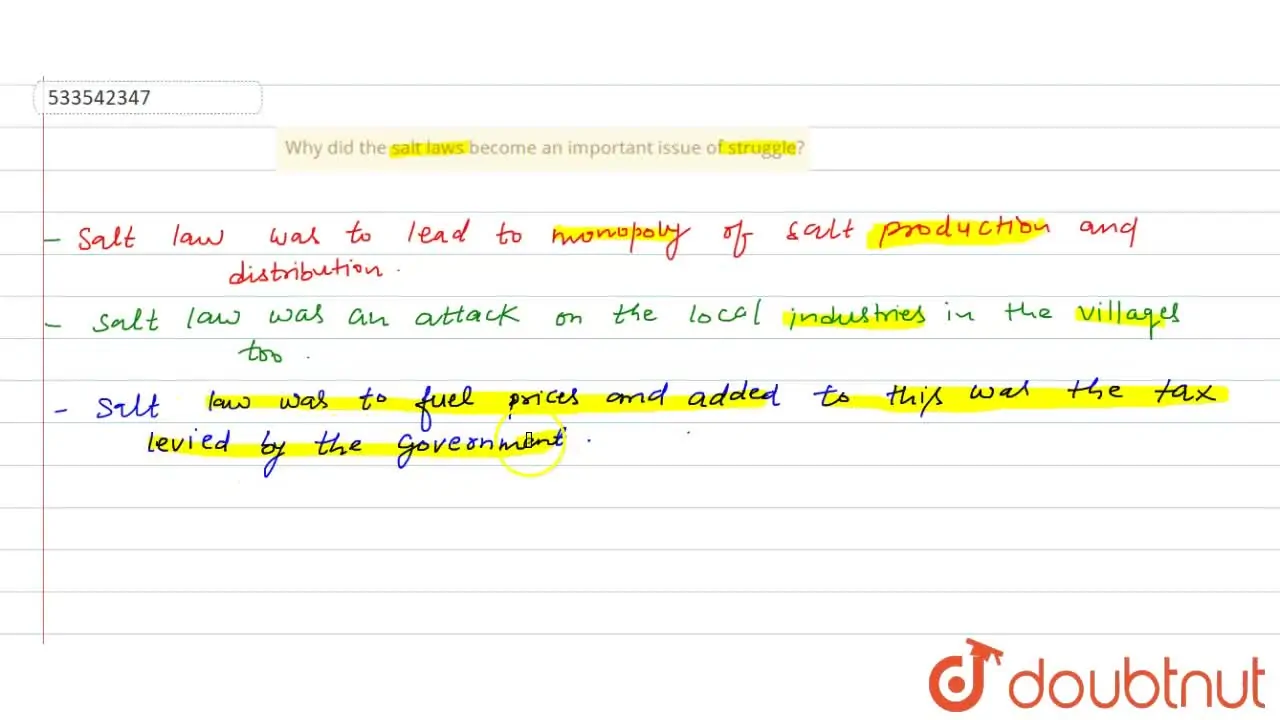 533542347
Why did the salt laws become an important issue of struggle?
- Salt law was to lead to monopoly of salt production and
distribution.
- Salt law was an attack on the local industries in the villages
too.
- Salt law was to fuel prices and added to this was the tax
levied by the government.
doubtnut